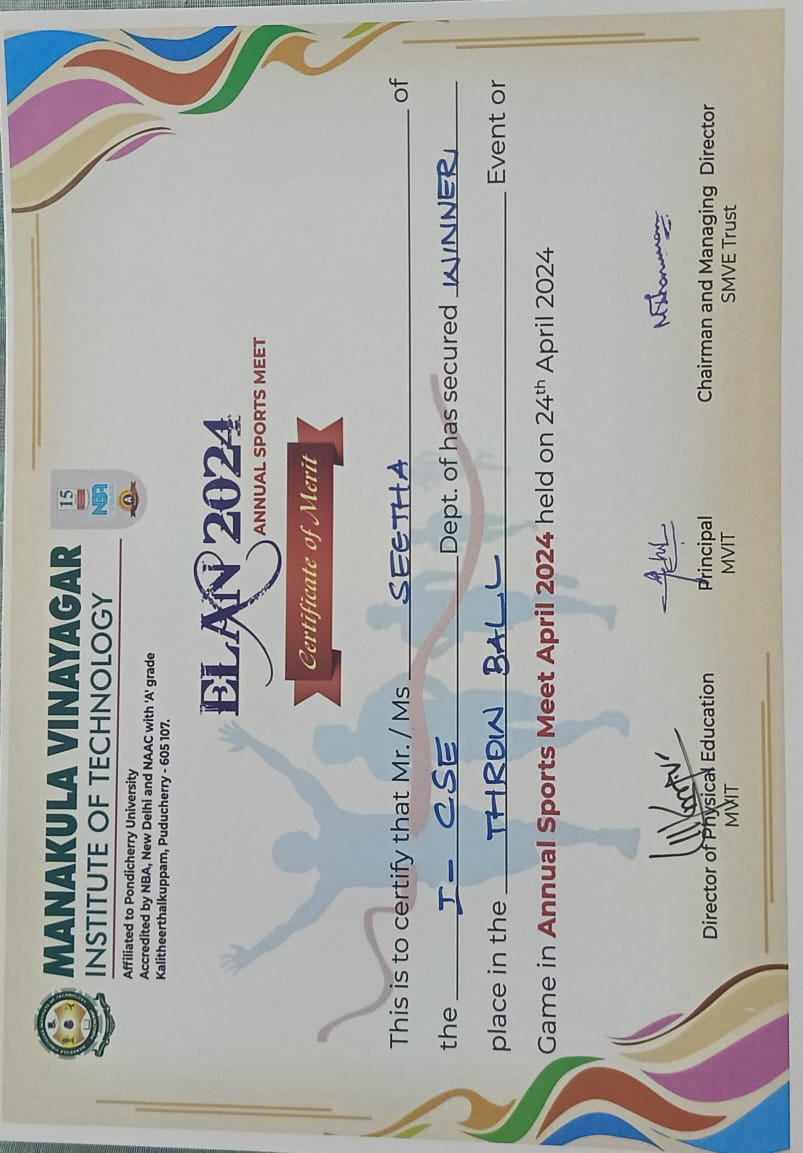 MANAKULA VINAYAGAR
INSTITUTE OF TECHNOLOGY
Affiliated to Pondicherry University
Accredited by NBA, New Delhi and NAAC with 'A' grade
Kalitheerthalkuppam, Puducherry - 605 107.
15
NBA
A
ELAN 2024
ANNUAL SPORTS MEET
Certificate of Merit
This is to certify that Mr. / Ms SEETHA of
the I - CSE Dept. of has secured WINNER
place in the THROW BALL Event or
Game in Annual Sports Meet April 2024 held on 24th April 2024
Director of Physical Education Principal Chairman and Managing Director
MVIT MVIT SMVE Trust